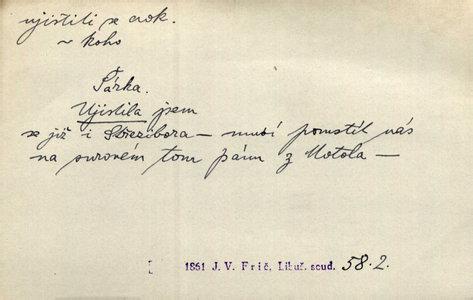 ujistiti se dok.
~ koho
Šárka.
Ujistila jsem
se již i Střezibora — musí pomstít nás
na surovém tom pánu z Motola —
1861 J. V. Frič, Libuš. soud. 58·2.